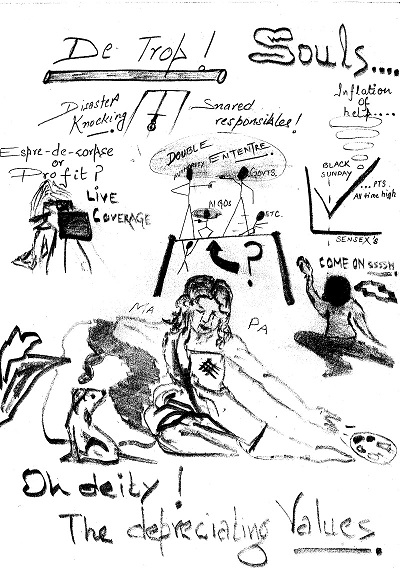 De Trop! Souls....
Disaster Knocking!
Snared responsibles!
Inflation of help....
Espre-de-corpse or Profit?
LIVE COVERAGE
DOUBLE ENTENTRE.
GOVTS.
NGOs
ETC.
?
BLACK SUNDAY
...PTS.
All time high
SENSEX's
COME ON SSSSH
MA
PA
Oh deity!
The depreciating Values.